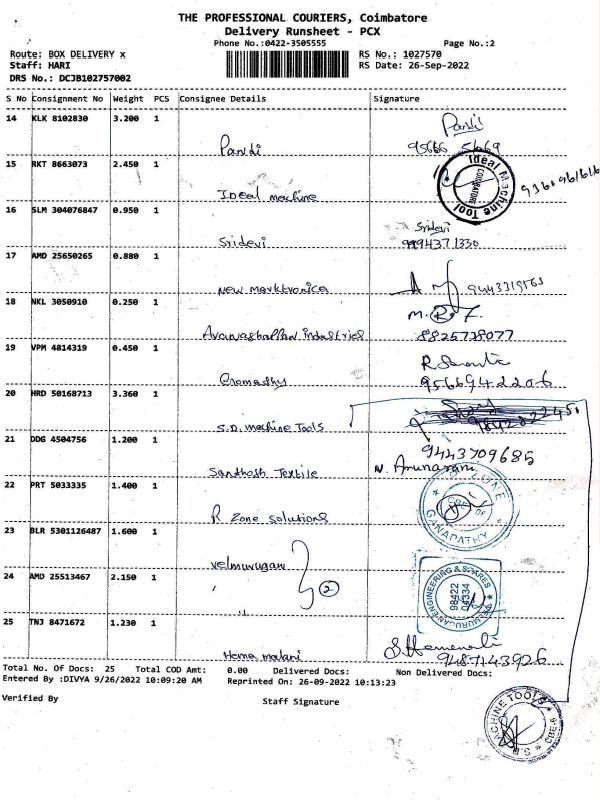 THE PROFESSIONAL COURIERS, Coimbatore
Delivery Runsheet - PCX
Phone No.:0422-3505555
Page No.:2
Route: BOX DELIVERY x
RS No.: 1027570
Staff: HARI
RS Date: 26-Sep-2022
DRS No.: DCJB102757002
S No Consignment No Weight PCS Consignee Details Signature
14 KLK 8102830 3.200 1
Pandi
Pandi
95666 51669
15 RKT 8663073 2.450 1
Ideal machine
Ideal Machine Tool
COIMBATORE
16 SLM 304076847 0.950 1
Sridevi
Sridevi
9994371330
17 AMD 25650265 0.880 1
New Marktronica
9443319563
18 NKL 3050910 0.250 1
industries
8825728077
19 VPM 4814319 0.450 1
Gomathy
9566942206
20 HRD 50168713 3.360 1
S.D. machine Tools
21 DDG 4504756 1.200 1
Santhosh Textile
9443709685
N. Arunarani
22 PRT 5033335 1.400 1
R Zone solutions
R ZONE
GANAPATHY
23 BLR 5301126487 1.600 1
velmurugan
2
24 AMD 25513467 2.150 1
"
ENGINEERING & SPARES
98422
04334
25 TNJ 8471672 1.230 1
Hema malani
9487143926
Total No. Of Docs: 25 Total COD Amt: 0.00 Delivered Docs: Non Delivered Docs:
Entered By :DIVYA 9/26/2022 10:09:20 AM Reprinted On: 26-09-2022 10:13:23
Verified By
Staff Signature
MACHINE TOOLS
CBE-6